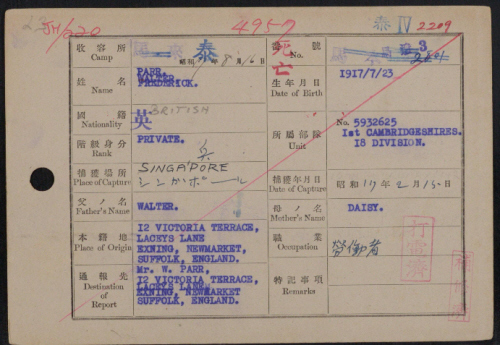 JH/220
4957
泰 IV 2209
收容所
Camp
泰
昭和 17年 8月 16日
番號
No.
死亡
3
姓名
Name
PARR,
WALTER
FREDERICK.
生年月日
Date of Birth
1917/7/23
國籍
Nationality
英
BRITISH
所屬部隊
Unit
No. 5932625
1st CAMBRIDGESHIRES.
18 DIVISION.
階級身分
Rank
PRIVATE.
兵
捕獲場所
Place of Capture
SINGAPORE
シンガポール
捕獲年月日
Date of Capture
昭和 17年 2月 15日
父ノ名
Father's Name
WALTER.
母ノ名
Mother's Name
DAISY.
本籍地
Place of Origin
12 VICTORIA TERRACE,
LACEYS LANE
EXNING, NEWMARKET,
SUFFOLK, ENGLAND.
職業
Occupation
勞働者
通報先
Destination of Report
Mr. W. PARR,
12 VICTORIA TERRACE,
LACEYS LANE,
EXNING, NEWMARKET
SUFFOLK, ENGLAND.
特記事項
Remarks